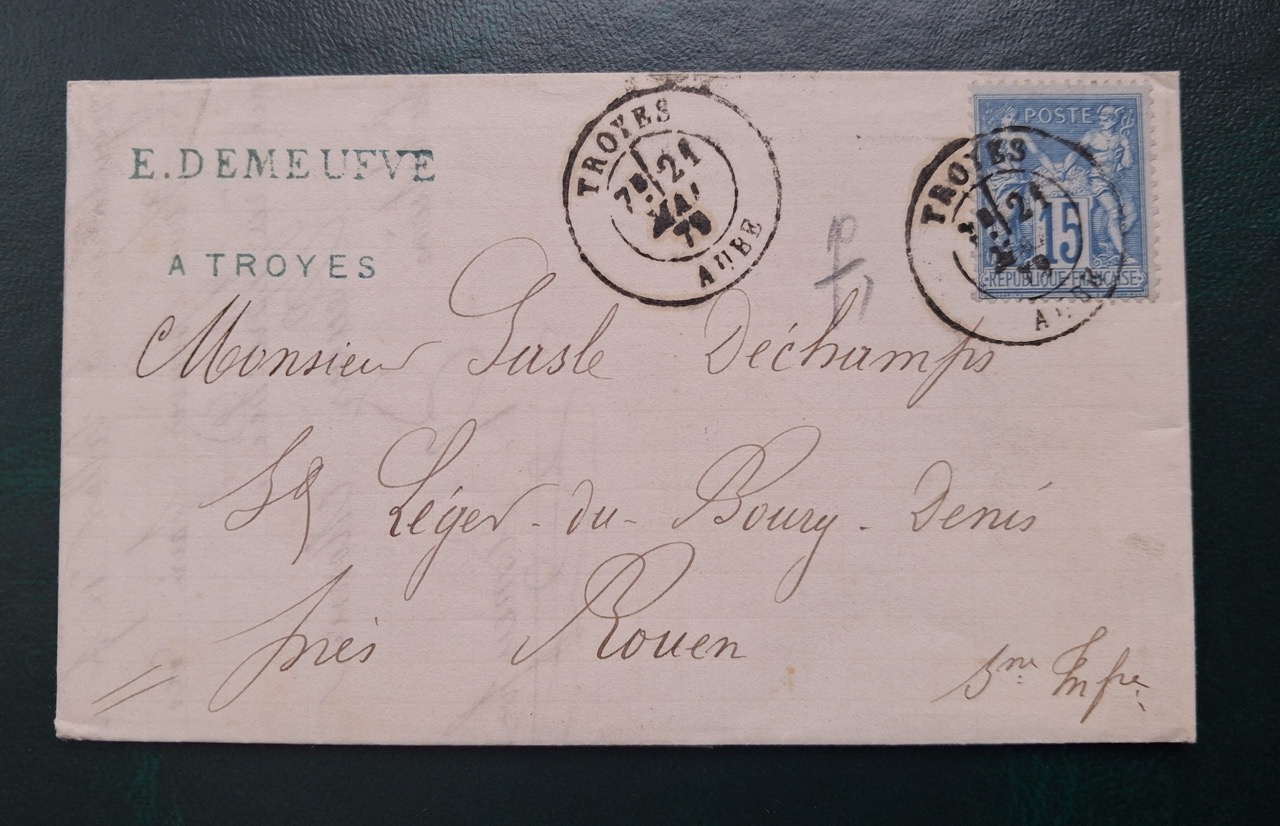 E. DEMEUFVE
A TROYES
TROYES
7E 21
MAI
79
AUBE
POSTE
15
REPUBLIQUE FRANCAISE
TROYES
21
79
AUBE
Monsieur Gasle Déchamps
St Léger-du-Bourg-Denis
près Rouen
Sne Infre